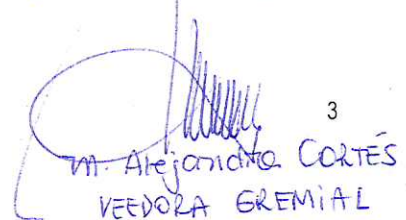 3
M. Alejandra CORTÉS
VEEDORA GREMIAL